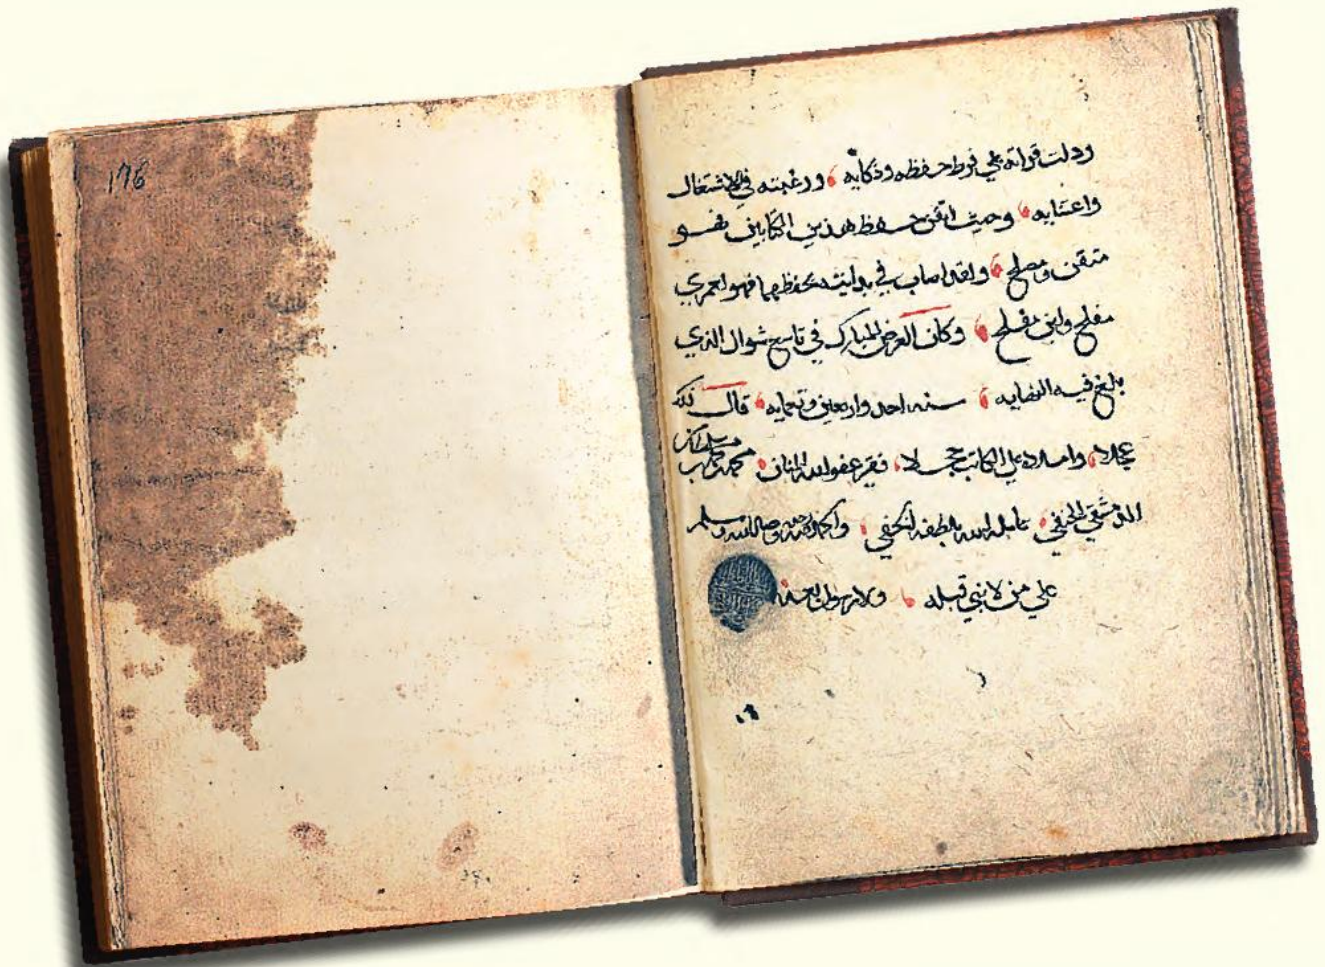 ودلت قراته علي فرط حفظه وذكايه ، ورغبته في الاشتغال
واعتنايه ، وحيث اتقن حفظ هذين الكتابين فهو
متقن ومصلح ، ولقد اصاب في بدايته بحفظهما فهو لعمري
مفلح وابن مفلح ، وكان العرض المبارك في تاسع شوال الذي
بلغ فيه النهايه ، سنه احدى واربعين وتسعمايه ، قال ذلك
عجلا ، واملاه علي الكاتب خجلا ، فقير عفو الله المنان ، محمد
الدمشقي الحنفي ، عامله الله بلطفه الخفي ، والحمد لله وحده وصلى الله وسلم
علي من لا نبي قبله ، ولا رسول بعده
176